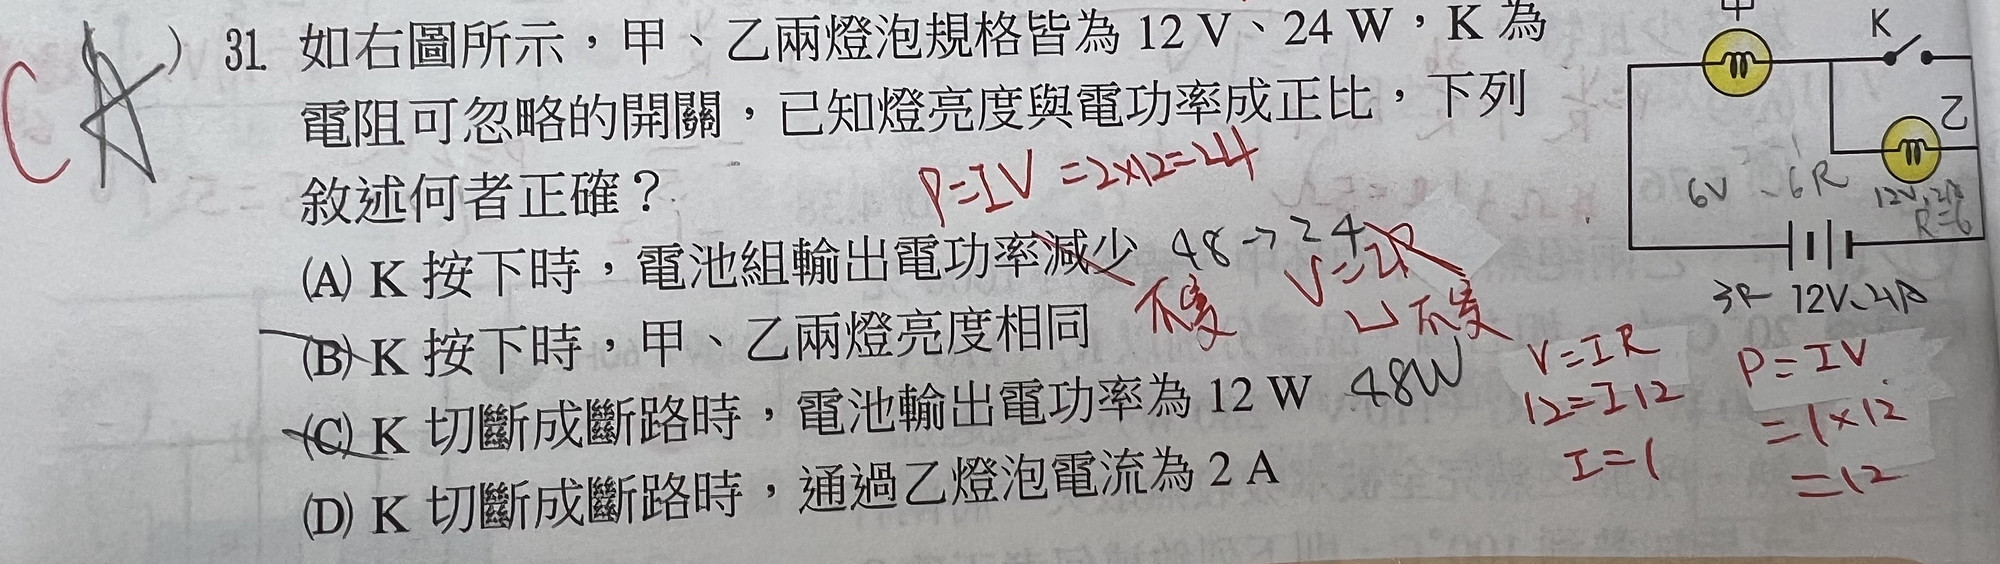 C A ) 31. 如右圖所示，甲、乙兩燈泡規格皆為 12 V、24 W，K 為
電阻可忽略的開關，已知燈亮度與電功率成正比，下列
敘述何者正確？
P=IV =2×12=24
(A) K 按下時，電池組輸出電功率減少 48→24
不變
V=IR
不變
(B) K 按下時，甲、乙兩燈亮度相同
(C) K 切斷成斷路時，電池輸出電功率為 12 W 48W
(D) K 切斷成斷路時，通過乙燈泡電流為 2 A
甲
K
乙
6V、6R
R=6
V=IR
12=I12
I=1
P=IV
=1×12
=12